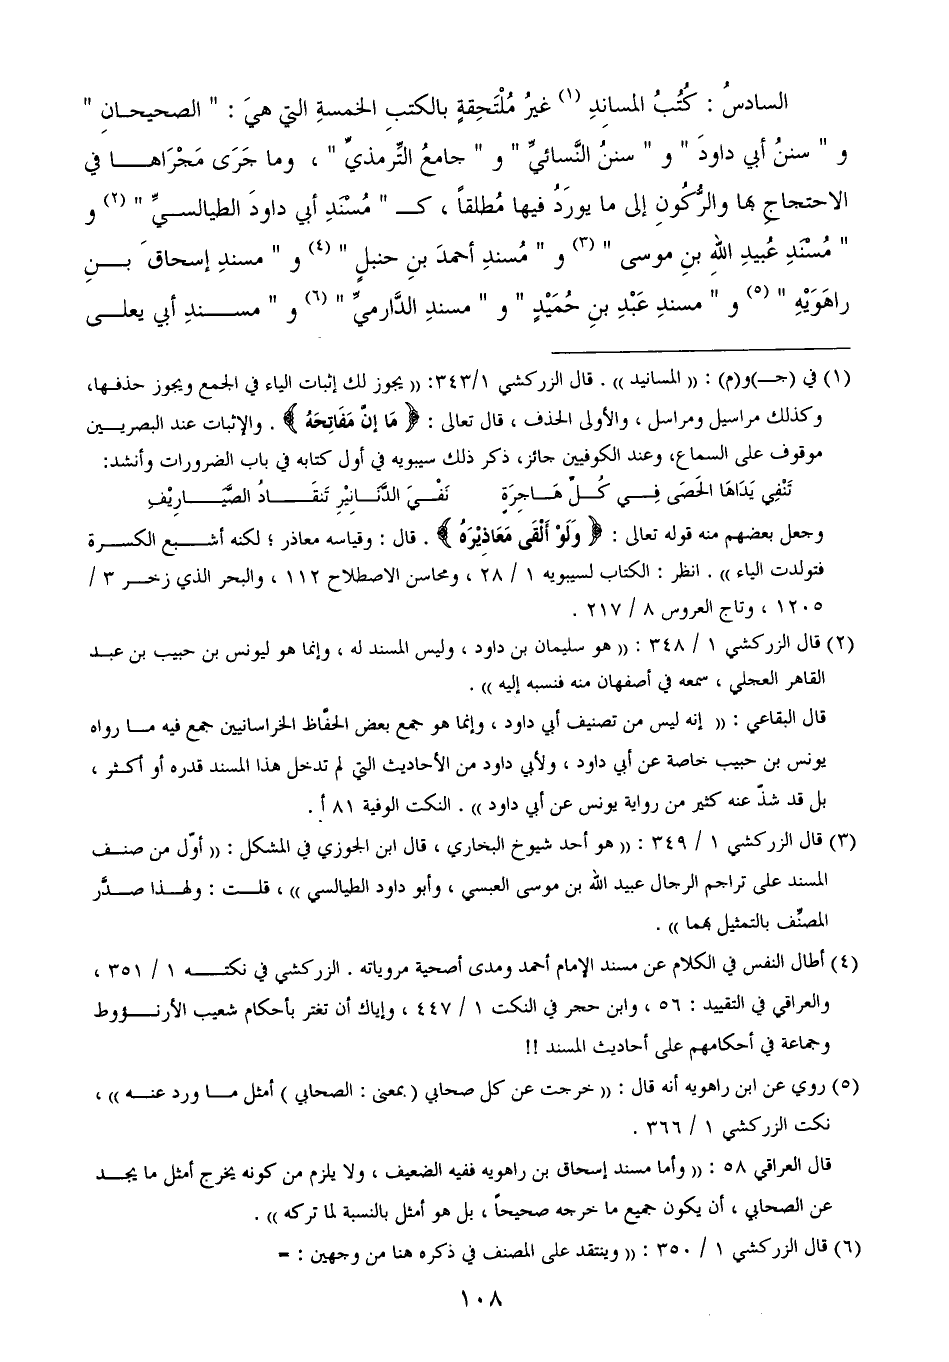 السادسُ : كُتُبُ المساندِ (١) غيرُ مُلْتَحِقةٍ بالكتبِ الخمسةِ التي هيَ : " الصحيحانِ "
و " سننُ أبي داودَ " و " سننُ النَّسائيِّ " و " جامعُ التِّرمذيِّ " ، وما جَرَى مَجْراهــا في
الاحتجاجِ بها والرُّكُونِ إلى ما يورَدُ فيها مُطلقاً ، كــ " مُسْنَدِ أبي داودَ الطيالسـيِّ " (٢) و
" مُسْنَدِ عُبيدِ اللهِ بنِ موسى " (٣) و " مُسندِ أحمدَ بنِ حنبلٍ " (٤) و " مسندِ إسحاقَ بـنِ
راهَوَيْهِ " (٥) و " مسندِ عَبْدِ بنِ حُمَيْدٍ " و " مسندِ الدَّارميِّ " (٦) و " مســندِ أبي يعلـى
(١) في (جـ)و(م) : (( المسانيد )) . قال الزركشي ٣٤٣/١: (( يجوز لك إثبات الياء في الجمع ويجوز حذفها،
وكذلك مراسيل ومراسل ، والأولى الحذف ، قال تعالى : ﴿ مَا إِنَّ مَفَاتِحَهُ ﴾ . والإثبات عند البصريـين
موقوف على السماع، وعند الكوفيين جائز، ذكر ذلك سيبويه في أول كتابه في باب الضرورات وأنشد:
تَنْفِي يَدَاهَا الحَصَى فِـي كُـلِّ هَـاجِرَةٍ نَفْـيَ الدَّنَانِيْرِ تَنقَـادُ الصَّيَـارِيْفِ
وجعل بعضهم منه قوله تعالى : ﴿ وَلَوْ أَلْقَى مَعَاذِيْرَهُ ﴾ . قال : وقياسه معاذر ؛ لكنه أشـبع الكـسرة
فتولدت الياء )) . انظر : الكتاب لسيبويه ١ / ٢٨ ، ومحاسن الاصطلاح ١١٢ ، والبحر الذي زخـر ٣ /
١٢٠٥ ، وتاج العروس ٨ / ٢١٧ .
(٢) قال الزركشي ١ / ٣٤٨ : (( هو سليمان بن داود ، وليس المسند له ، وإنما هو ليونس بن حبيب بن عبـد
القاهر العجلي ، سمعه في أصفهان منه فنسبه إليه )) .
قال البقاعي : (( إنه ليس من تصنيف أبي داود ، وإنما هو جمع بعض الحفّاظ الخراسانيين جمع فيه مـا رواه
يونس بن حبيب خاصة عن أبي داود ، ولأبي داود من الأحاديث التي لم تدخل هذا المسند قدره أو أكـثر ،
بل قد شذّ عنه كثير من رواية يونس عن أبي داود )) . النكت الوفية ٨١ أ .
(٣) قال الزركشي ١ / ٣٤٩ : (( هو أحد شيوخ البخاري ، قال ابن الجوزي في المشكل : (( أوّل من صنـف
المسند على تراجم الرجال عبيد الله بن موسى العبسي ، وأبو داود الطيالسي )) ، قلـت : ولهـذا صـدَّر
المصنِّف بالتمثيل بهما )) .
(٤) أطال النفس في الكلام عن مسند الإمام أحمد ومدى أصحية مروياته . الزركشي في نكتــه ١ / ٣٥١ ،
والعراقي في التقييد : ٥٦ ، وابن حجر في النكت ١ / ٤٤٧ ، وإياك أن تغتر بأحكام شعيب الأرنــؤوط
وجماعة في أحكامهم على أحاديث المسند !!
(٥) روي عن ابن راهويه أنه قال : (( خرجت عن كل صحابي ( بمعنى : الصحابي ) أمثل مـا ورد عنـه )) ،
نكت الزركشي ١ / ٣٦٦ .
قال العراقي ٥٨ : (( وأما مسند إسحاق بن راهويه ففيه الضعيف ، ولا يلزم من كونه يخرج أمثل ما يجـد
عن الصحابي ، أن يكون جميع ما خرجه صحيحاً ، بل هو أمثل بالنسبة لما تركه )) .
(٦) قال الزركشي ١ / ٣٥٠ : (( وينتقد على المصنف في ذكره هنا من وجهين : =
١٠٨